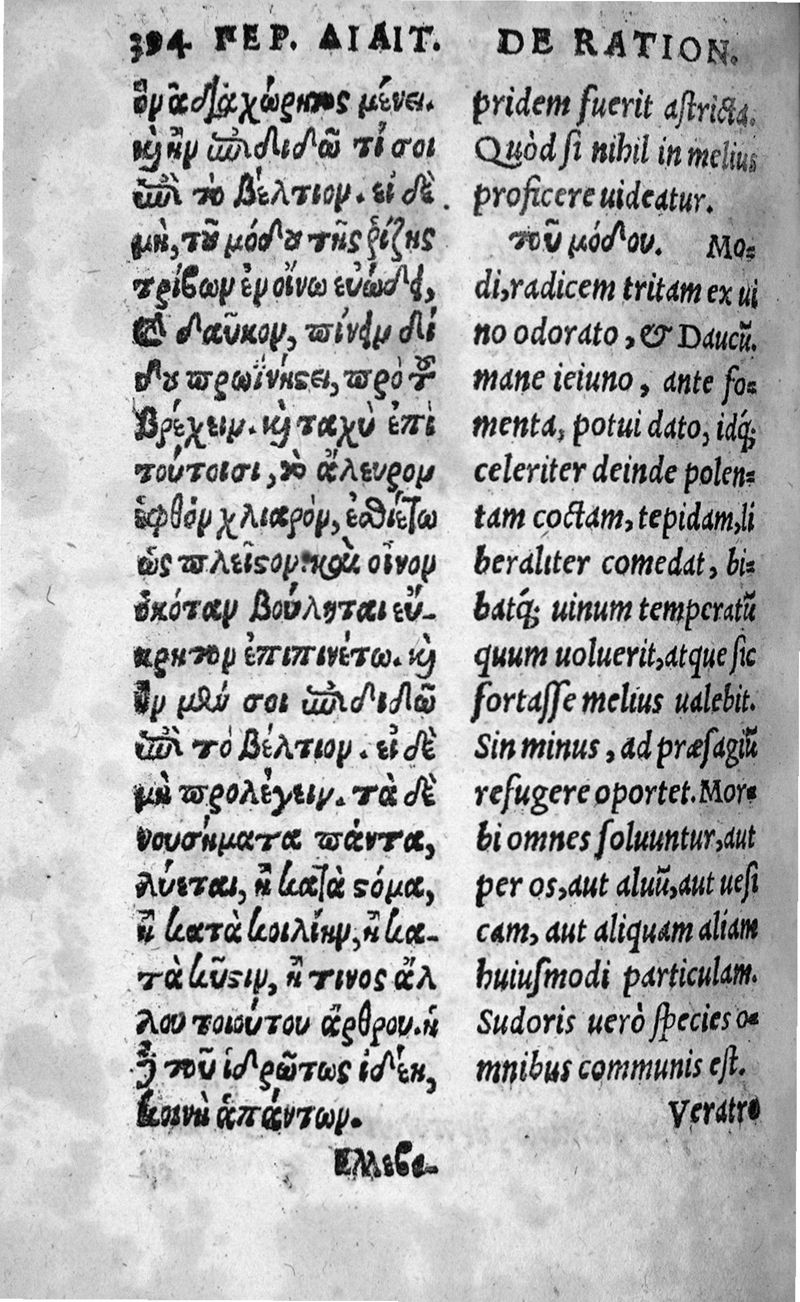 394 ΠΕΡ. ΔΙΑΙΤ.
ἀδιαχώρητος μένει.
κὶ ἢν ἐπιδιδῶ τί σοι
ἐπὶ τὸ βέλτιον. εἰ δὲ
μὴ, τοῦ μόδου τῆς ῥίζης
τρίβων ἐν οἴνω εὐώδει,
δαῦκον, πίνειν δί
δου πρωῒ νήστει, πρὸ τοῦ
βρέχειν. κὶ ταχὺ ἐπὶ
τούτοισι, τὸ ἄλευρον
ἑφθὸν χλιαρὸν, ἐσθιέτω
ὡς πλεῖστον. καὶ οἶνον
ὁκόταν βούληται εὔ-
κρητον ἐπιπινέτω. κὶ
ἢν μέν σοι ἐπιδιδῶ
ἐπὶ τὸ βέλτιον. εἰ δὲ
μὴ προλέγειν. τὰ δὲ
νουσήματα πάντα,
λύεται, ἢ κατὰ στόμα,
ἢ κατὰ κοιλίην, ἢ κα-
τὰ κύστιν, ἤ τινος ἄλ
λου τοιούτου ἄρθρου. ἡ
τοῦ ἱδρῶτος ἰδέη,
κοινὴ ἁπάντων.
Ελλεβο-
DE RATION.
pridem fuerit astricta.
Quòd si nihil in melius
proficere uideatur.
τοῦ μόδου. Mo-
di, radicem tritam ex ui
no odorato, & Daucū.
mane ieiuno, ante fo-
menta, potui dato, idq́;
celeriter deinde polen-
tam coctam, tepidam, li
beraliter comedat, bi-
batq́; uinum temperatū
quum uoluerit, atque sic
fortasse melius ualebit.
Sin minus, ad præsagiū
refugere oportet. Mor-
bi omnes soluuntur, aut
per os, aut aluū, aut uesi
cam, aut aliquam aliam
huiusmodi particulam.
Sudoris uerò species o-
mnibus communis est.
Veratro